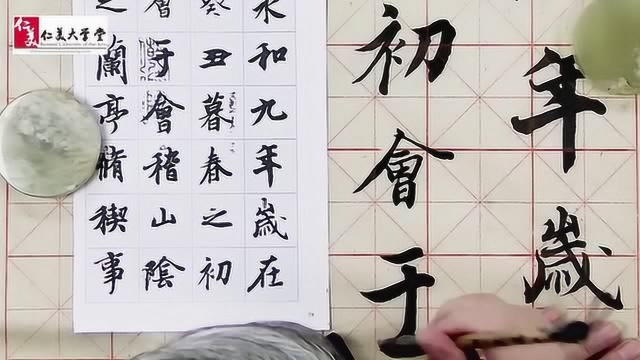 仁美
仁美大学堂
年歲
初會于
永和九年歲在
癸丑暮春之初
會于會稽山陰
之蘭亭脩禊事